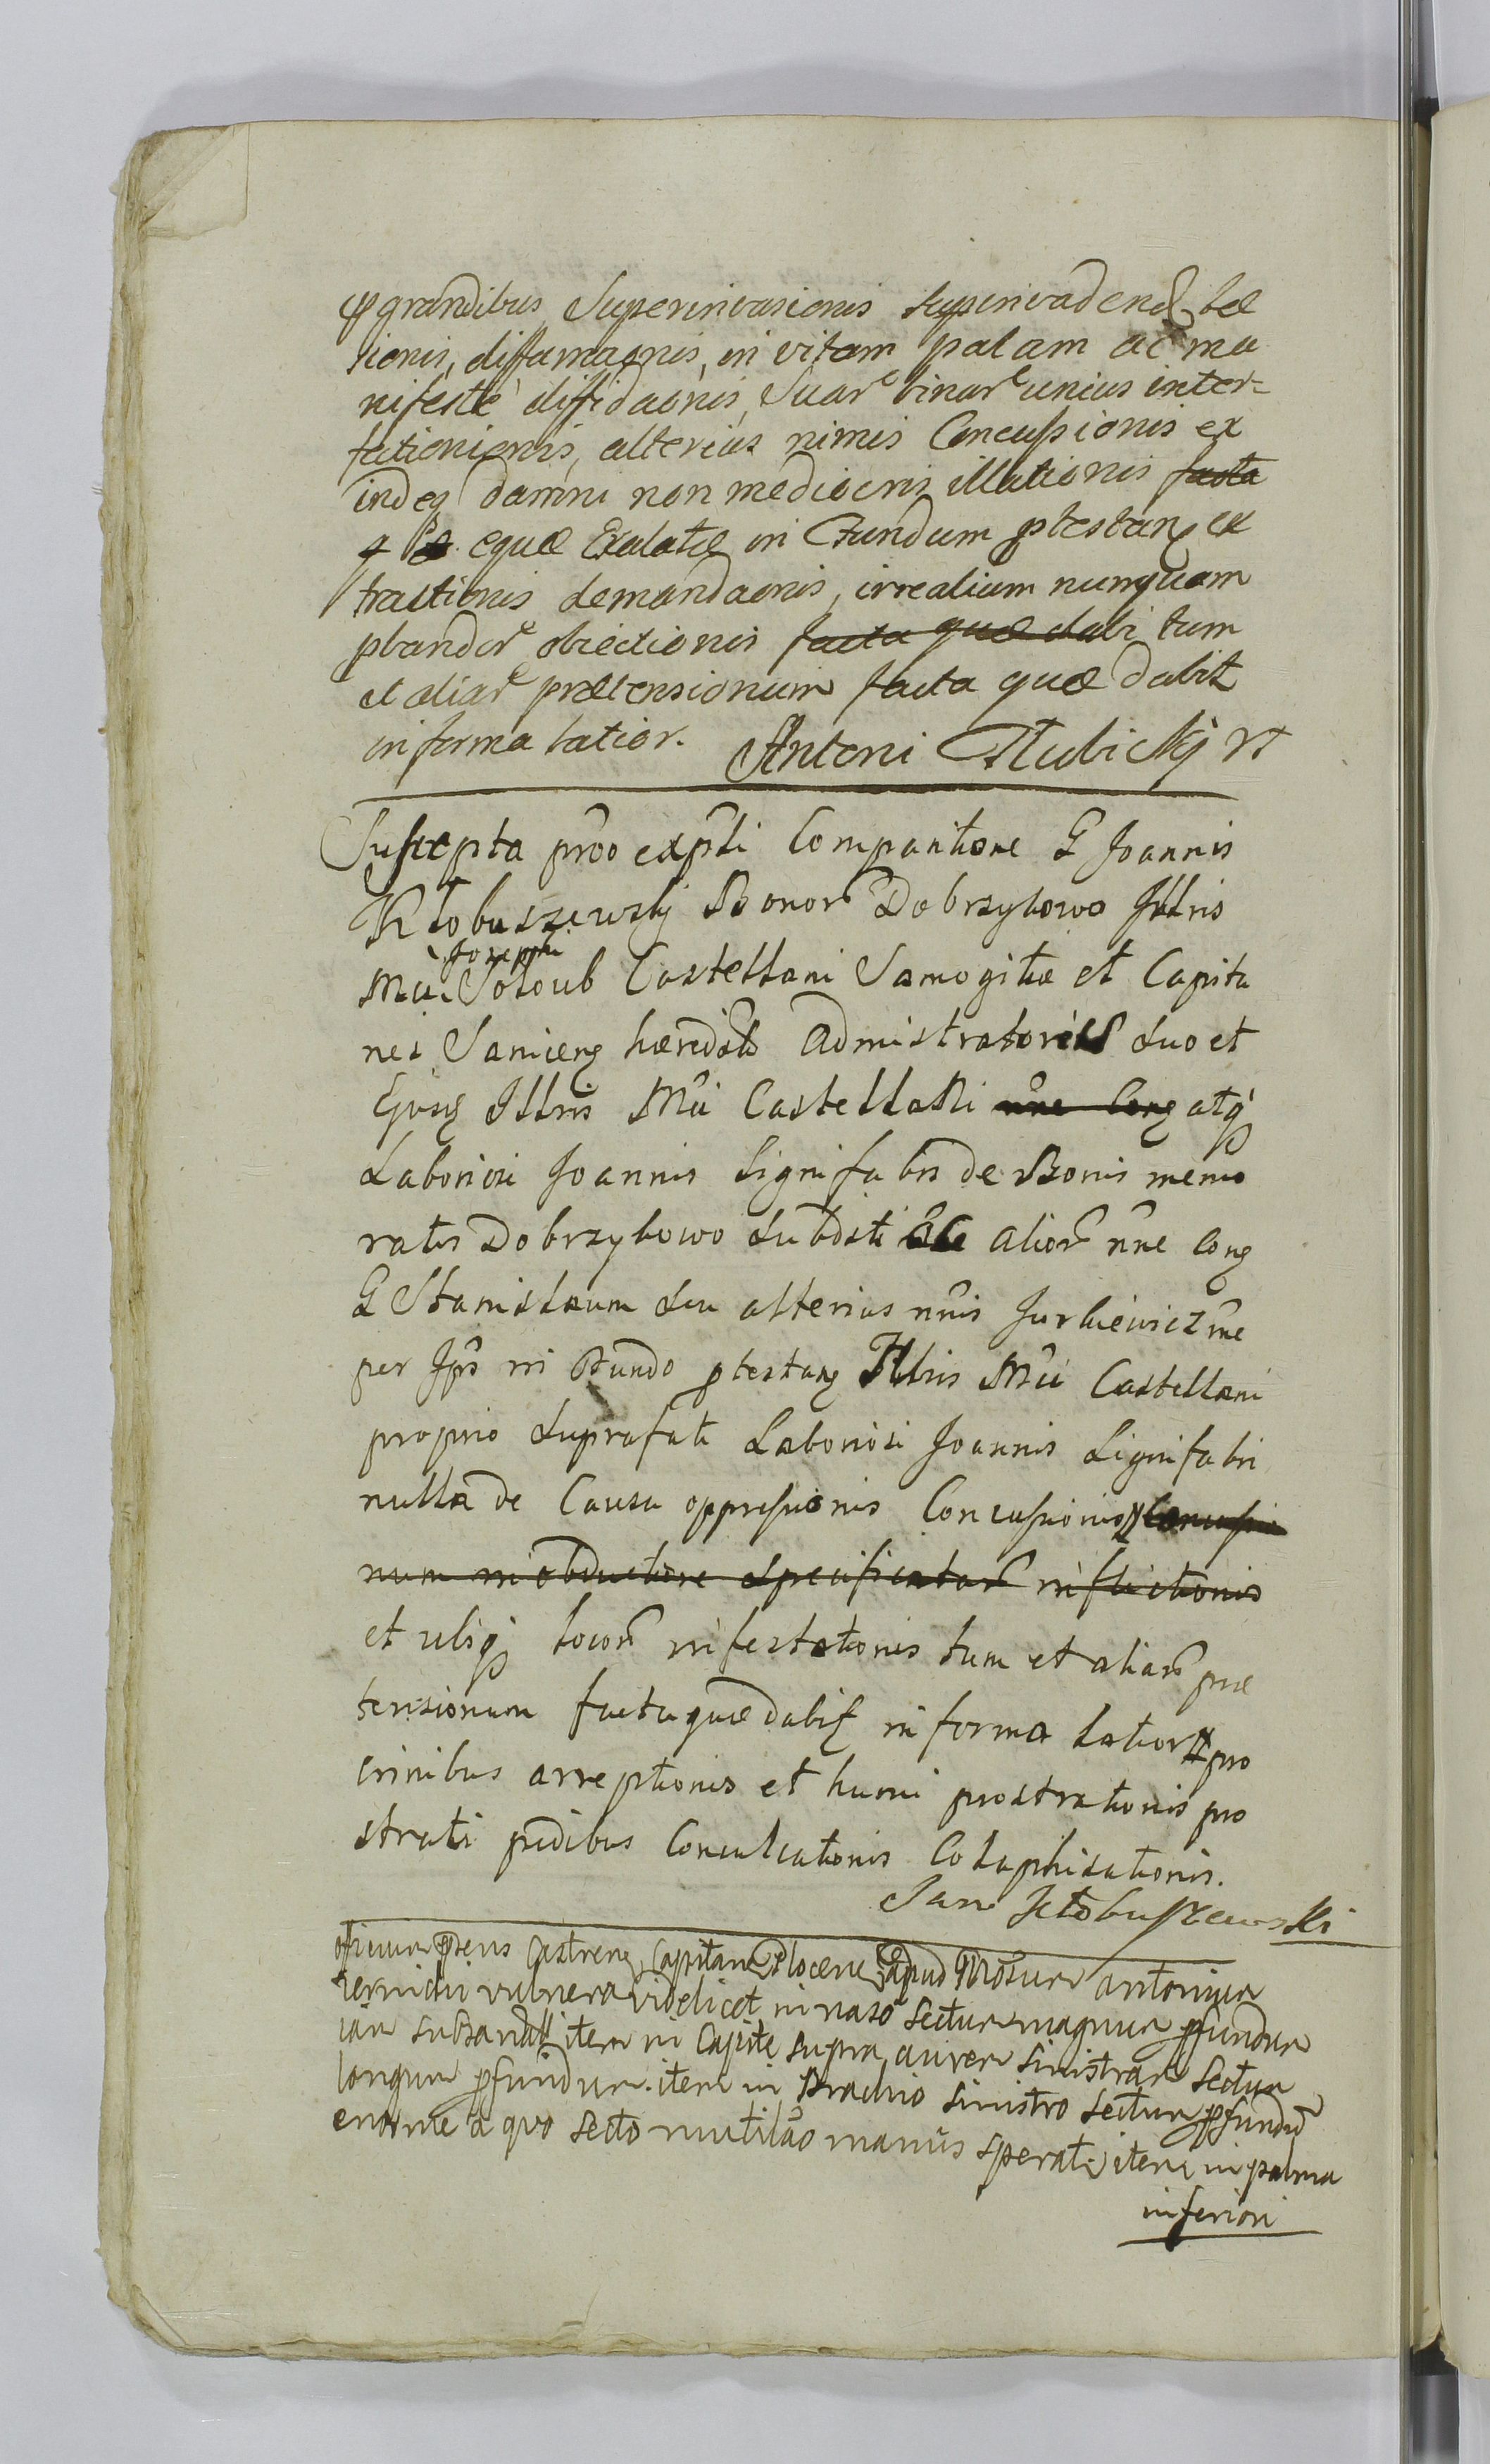 grandibus Superinvasionis superinvadend lae
sionis, diffamaõnis, in vitam palam ac ma
nifesté diffidaõnis, Suarᵉ binarᵉ unius inter-
fectionionis, alterius nimis Concussionis ex
indeq damni non mediocris illationis facta
equæ Exalatæ in Fundum ptestan ex
tractionis demandaõnis, irrealium nunquam
pbandor obiectionis facta quæ dabi tum
et aliar prætensionum facta quæ dabit
in forma latior. Antoni
Suscepta pr̃o exp̃sti Comparitione G Joannis
Kłobuszewsky Bonor̃ Dobrzykowo Illris
Josephi
Mci Sołoub Castellani Samogitiæ et Capita
nei Saniceng hæredit Admistratoris suo et
Ejusq Illris Mci Castellani nne Cong atq
Laboriosi Joannis Lignifabri de Bonis memo
ratis Dobrzykowo Subditi ac alior̃ nne Cong
G Stanislaum seu alterius nñis Jurkiewicz me
per Ips in Fundo ptestang Illris Mci Castellani
proprio suprafati Laboriosi Joannis Lignifabri
nulla de Causa oppressionis Concussionis Concussio
num in obductione specificatar̃ inflictionis
et reliq locor̃ infestationis tum et aliar̃ præ
tensionum facta quæ dabit in forma latior pro
crinibus arreptionis et humi prostrationis pro
strati pedibus Conculcationis Colaphisationis.
Jan Kłobuszewski
officium p̃sens Castrens Capitan Plocens apud Antonium
vulnera videlicet in naso sectum magnum pfundum
item in Capite supra aurem sinistram sectum
longum pfundum. item in Brachio sinistro sectum pfundũ
enorme a quo secto mutilaõ manus sperat. item in palma
inferiori